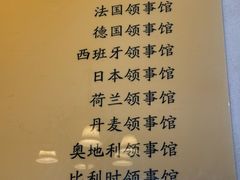 法国领事馆
德国领事馆
西班牙领事馆
日本领事馆
荷兰领事馆
丹麦领事馆
奥地利领事馆
比利时领事馆